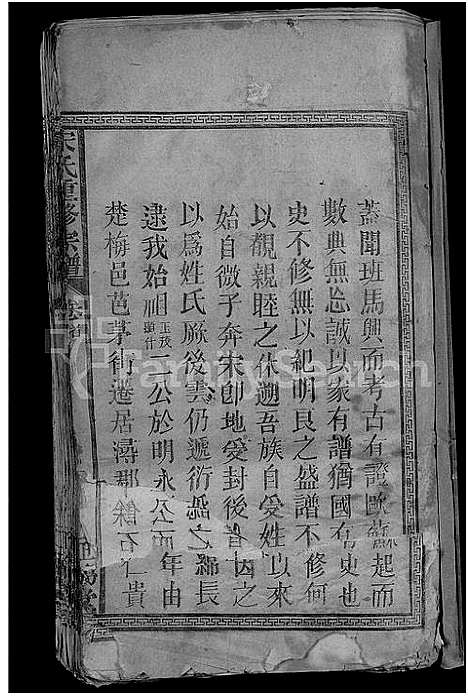 蓋聞班馬興而考古有證歐蘇起而
數典無忘誠以家有譜猶國有史也
史不修無以紀明良之盛譜不修何
以觀親睦之休遡吾族自受姓以來
始自微子奔宋卽地受封後者因之
以爲姓氏厥後雲仍遞衍緜之綿長
逮我始祖玉茂顯什二公於明永公四年由
楚梅邑芭茅街遷居潯郡餘石仁貴
宋氏重修宗譜
FamilySearch